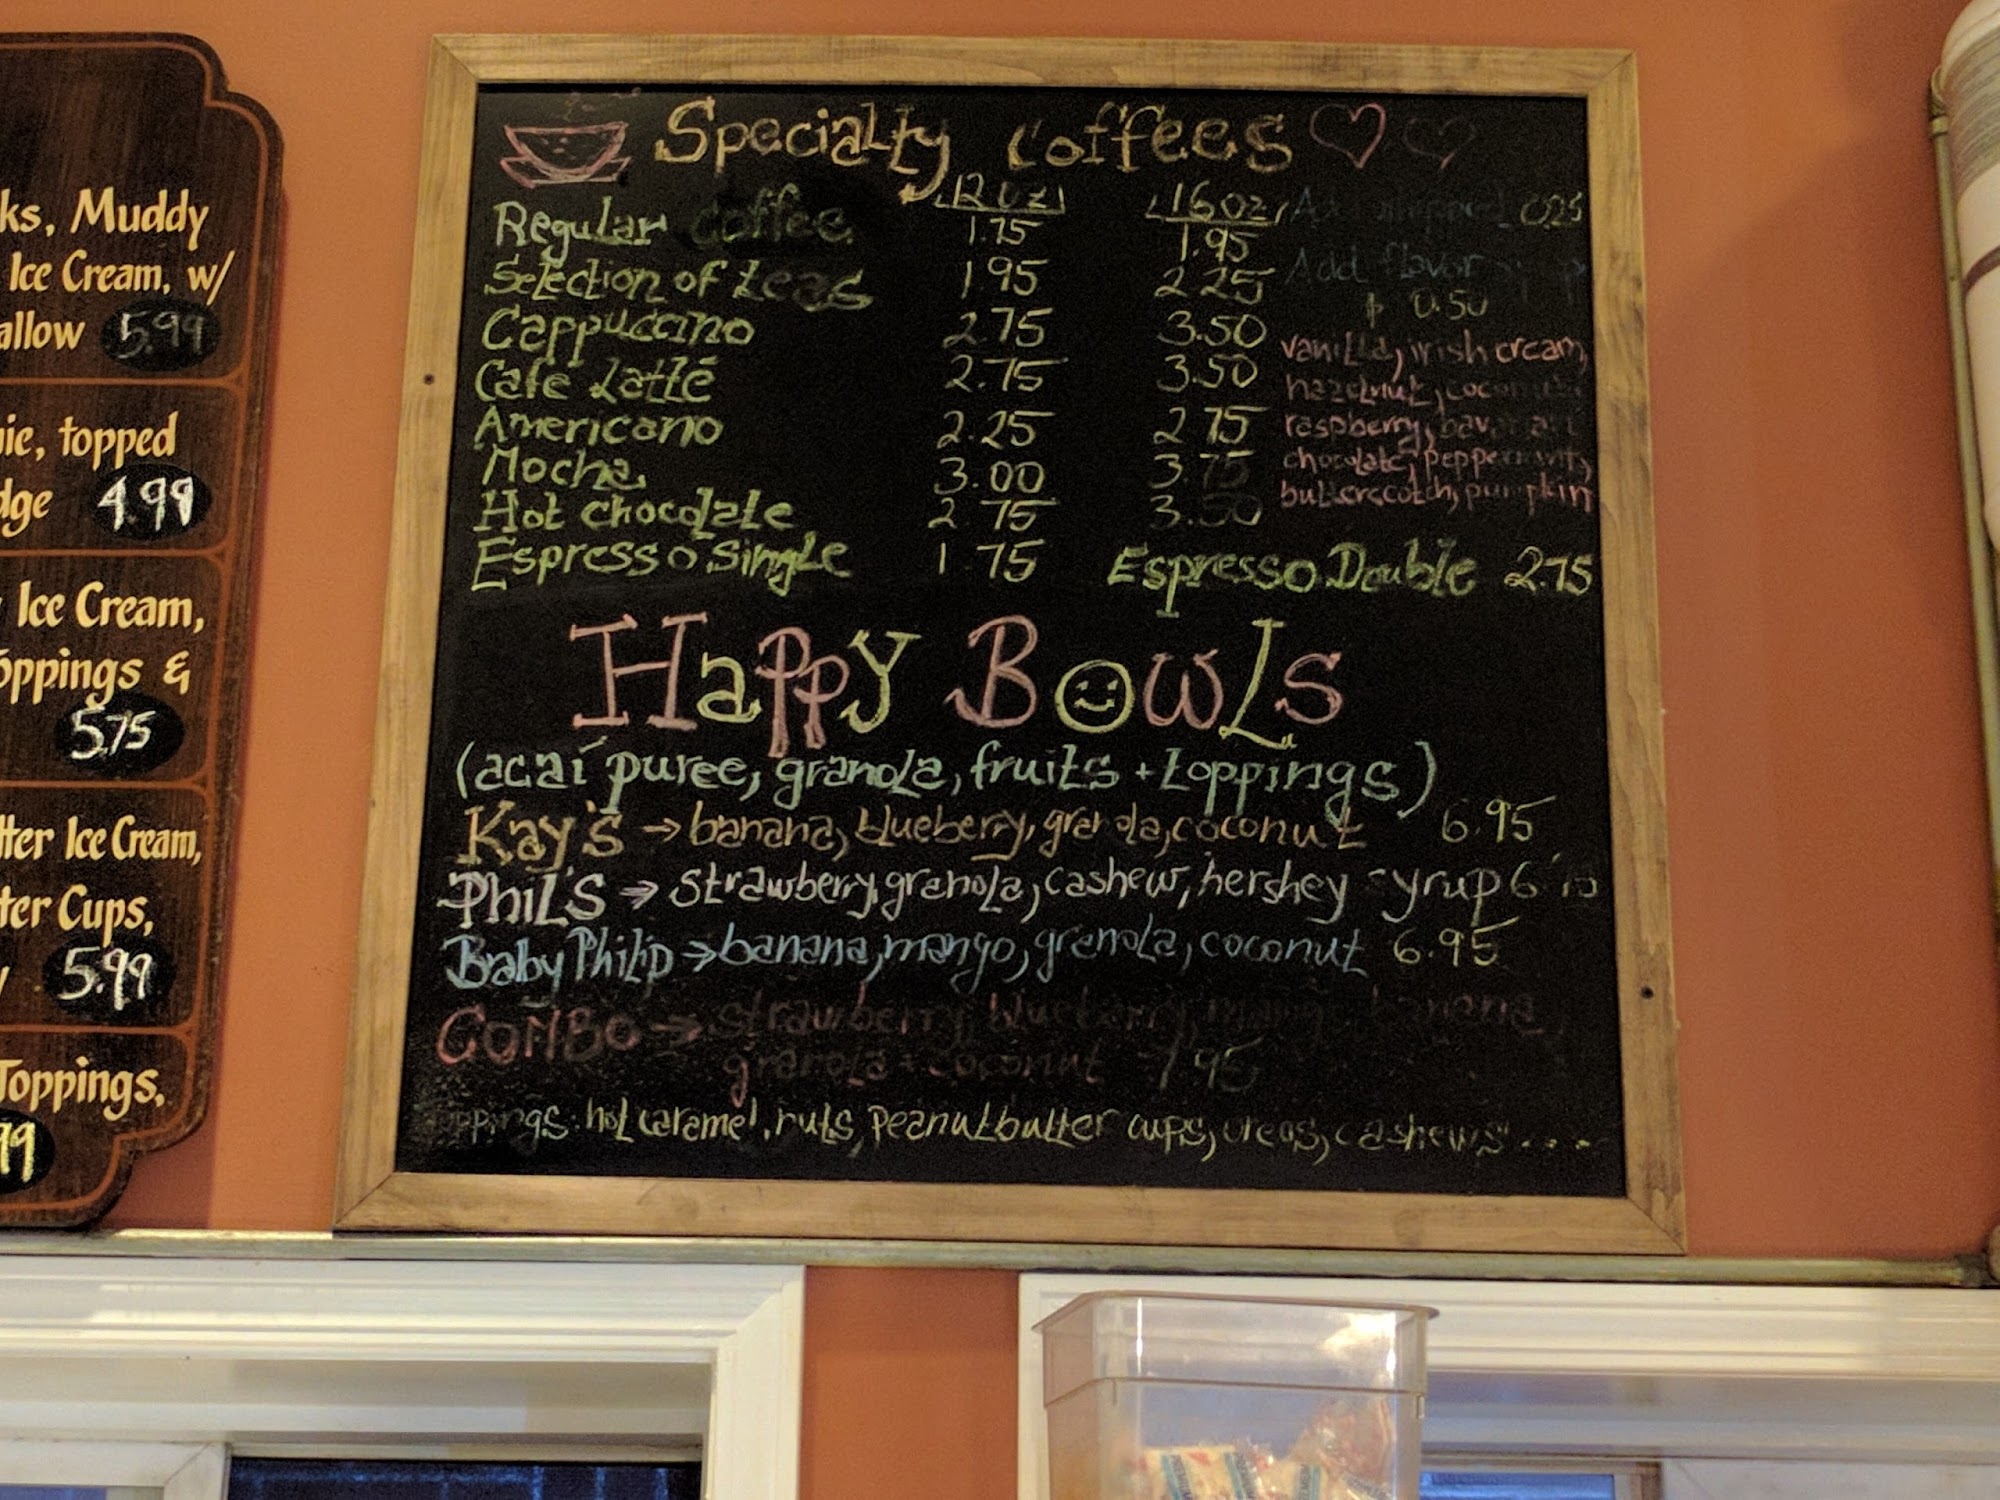 ks, Muddy
Ice Cream, w/
allow 5.99
ie, topped
dge 4.99
Ice Cream,
oppings &
5.75
tter Ice Cream,
ter Cups,
5.99
Toppings,
99
Specialty Coffees
12 oz 16 oz
Regular Coffee 1.75 1.95
Selection of teas 1.95 2.25
Cappuccino 2.75 3.50
Cafe Latté 2.75 3.50
Americano 2.25 2.75
Mocha 3.00 3.75
Hot chocolate 2.75 3.50
Espresso Single 1.75 Espresso Double 2.75
0.25
Add flavor
$ 0.50
vanilla, irish cream,
hazelnut, coconut,
raspberry, bavarian
chocolate, peppermint,
butterscotch, pumpkin
Happy Bowls
(acaí puree, granola, fruits + toppings)
Kay's → banana, blueberry, granola, coconut 6.95
Phil's → strawberry, granola, cashew, hershey syrup
Baby Philip → banana, mango, granola, coconut 6.95
COMBO → strawberry, blueberry, mango, banana,
granola + coconut 7.95
toppings: hot caramel, nuts, peanutbutter cups, oreos, cashews....